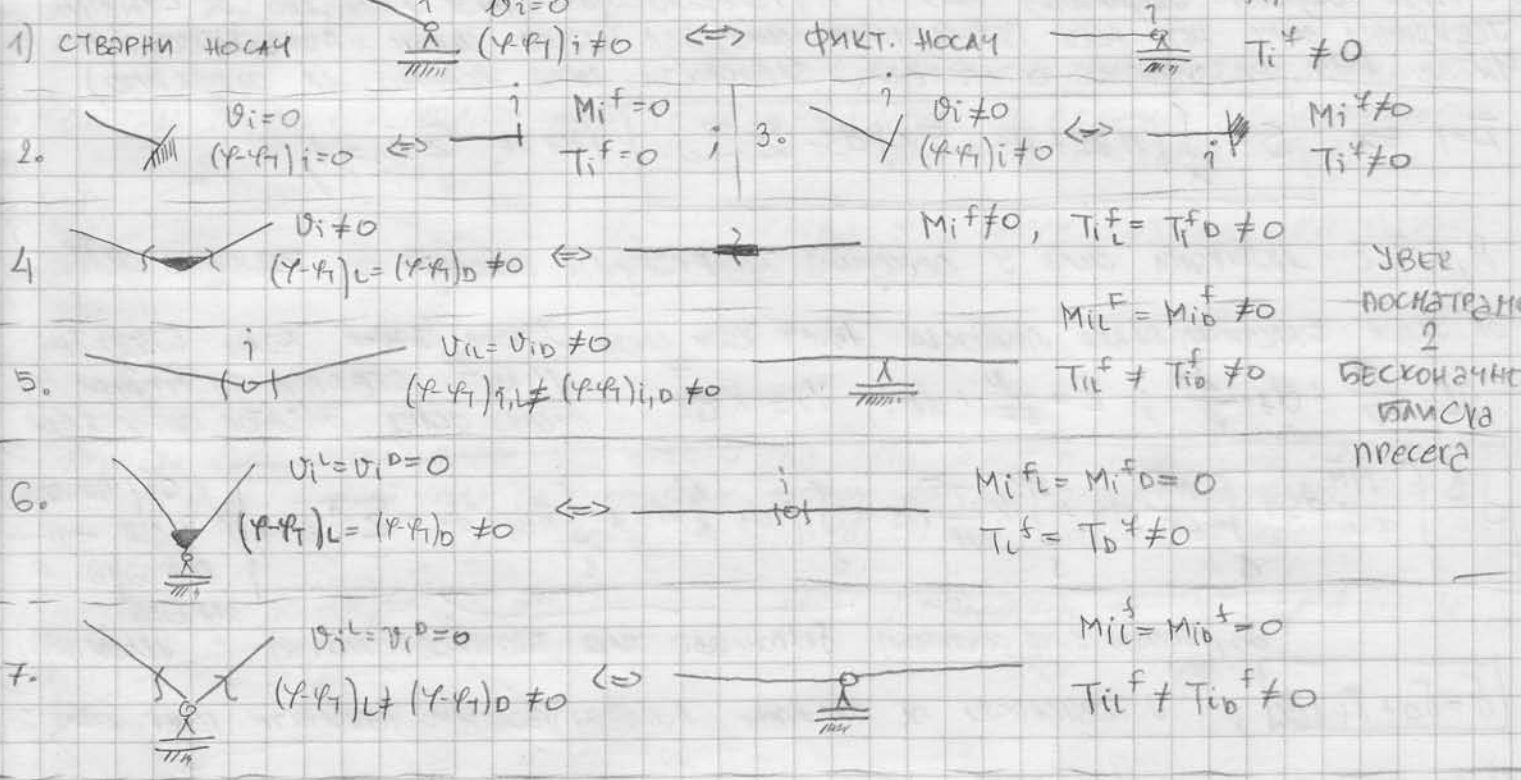 i ϑi=0 i
1) СТВАРНИ НОСАЧ (φ-φT)i≠0 <=> ФИКТ. НОСАЧ Ti^f ≠0
2. ϑi=0 (φ-φT)i=0 <=> i Mi^f=0 Ti^f=0 ; 3. i ϑi≠0 (φ-φT)i≠0 <=> i Mi^f≠0 Ti^f≠0
4 ϑi≠0 (φ-φT)L=(φ-φT)D≠0 <=> Mi^f≠0, TiL^f=Ti^fD≠0
5. i ViL=ViD≠0 (φ-φT)i,L≠(φ-φT)i,D≠0 MiL^F=MiD^f≠0 TiL^f≠TiD^f≠0
УВЕК
ПОСМАТРАМО
2
БЕСКОНАЧНО
БЛИСКА
ПРЕСЕКА
6. Vi^L=Vi^D=0 (φ-φT)L=(φ-φT)D≠0 <=> i Mi^fL=Mi^fD=0 TL^f=TD^f≠0
7. ϑi^L=ϑi^D=0 (φ-φT)L≠(φ-φT)D≠0 <=> MiL^f=MiD^f=0 TiL^f≠TiD^f≠0